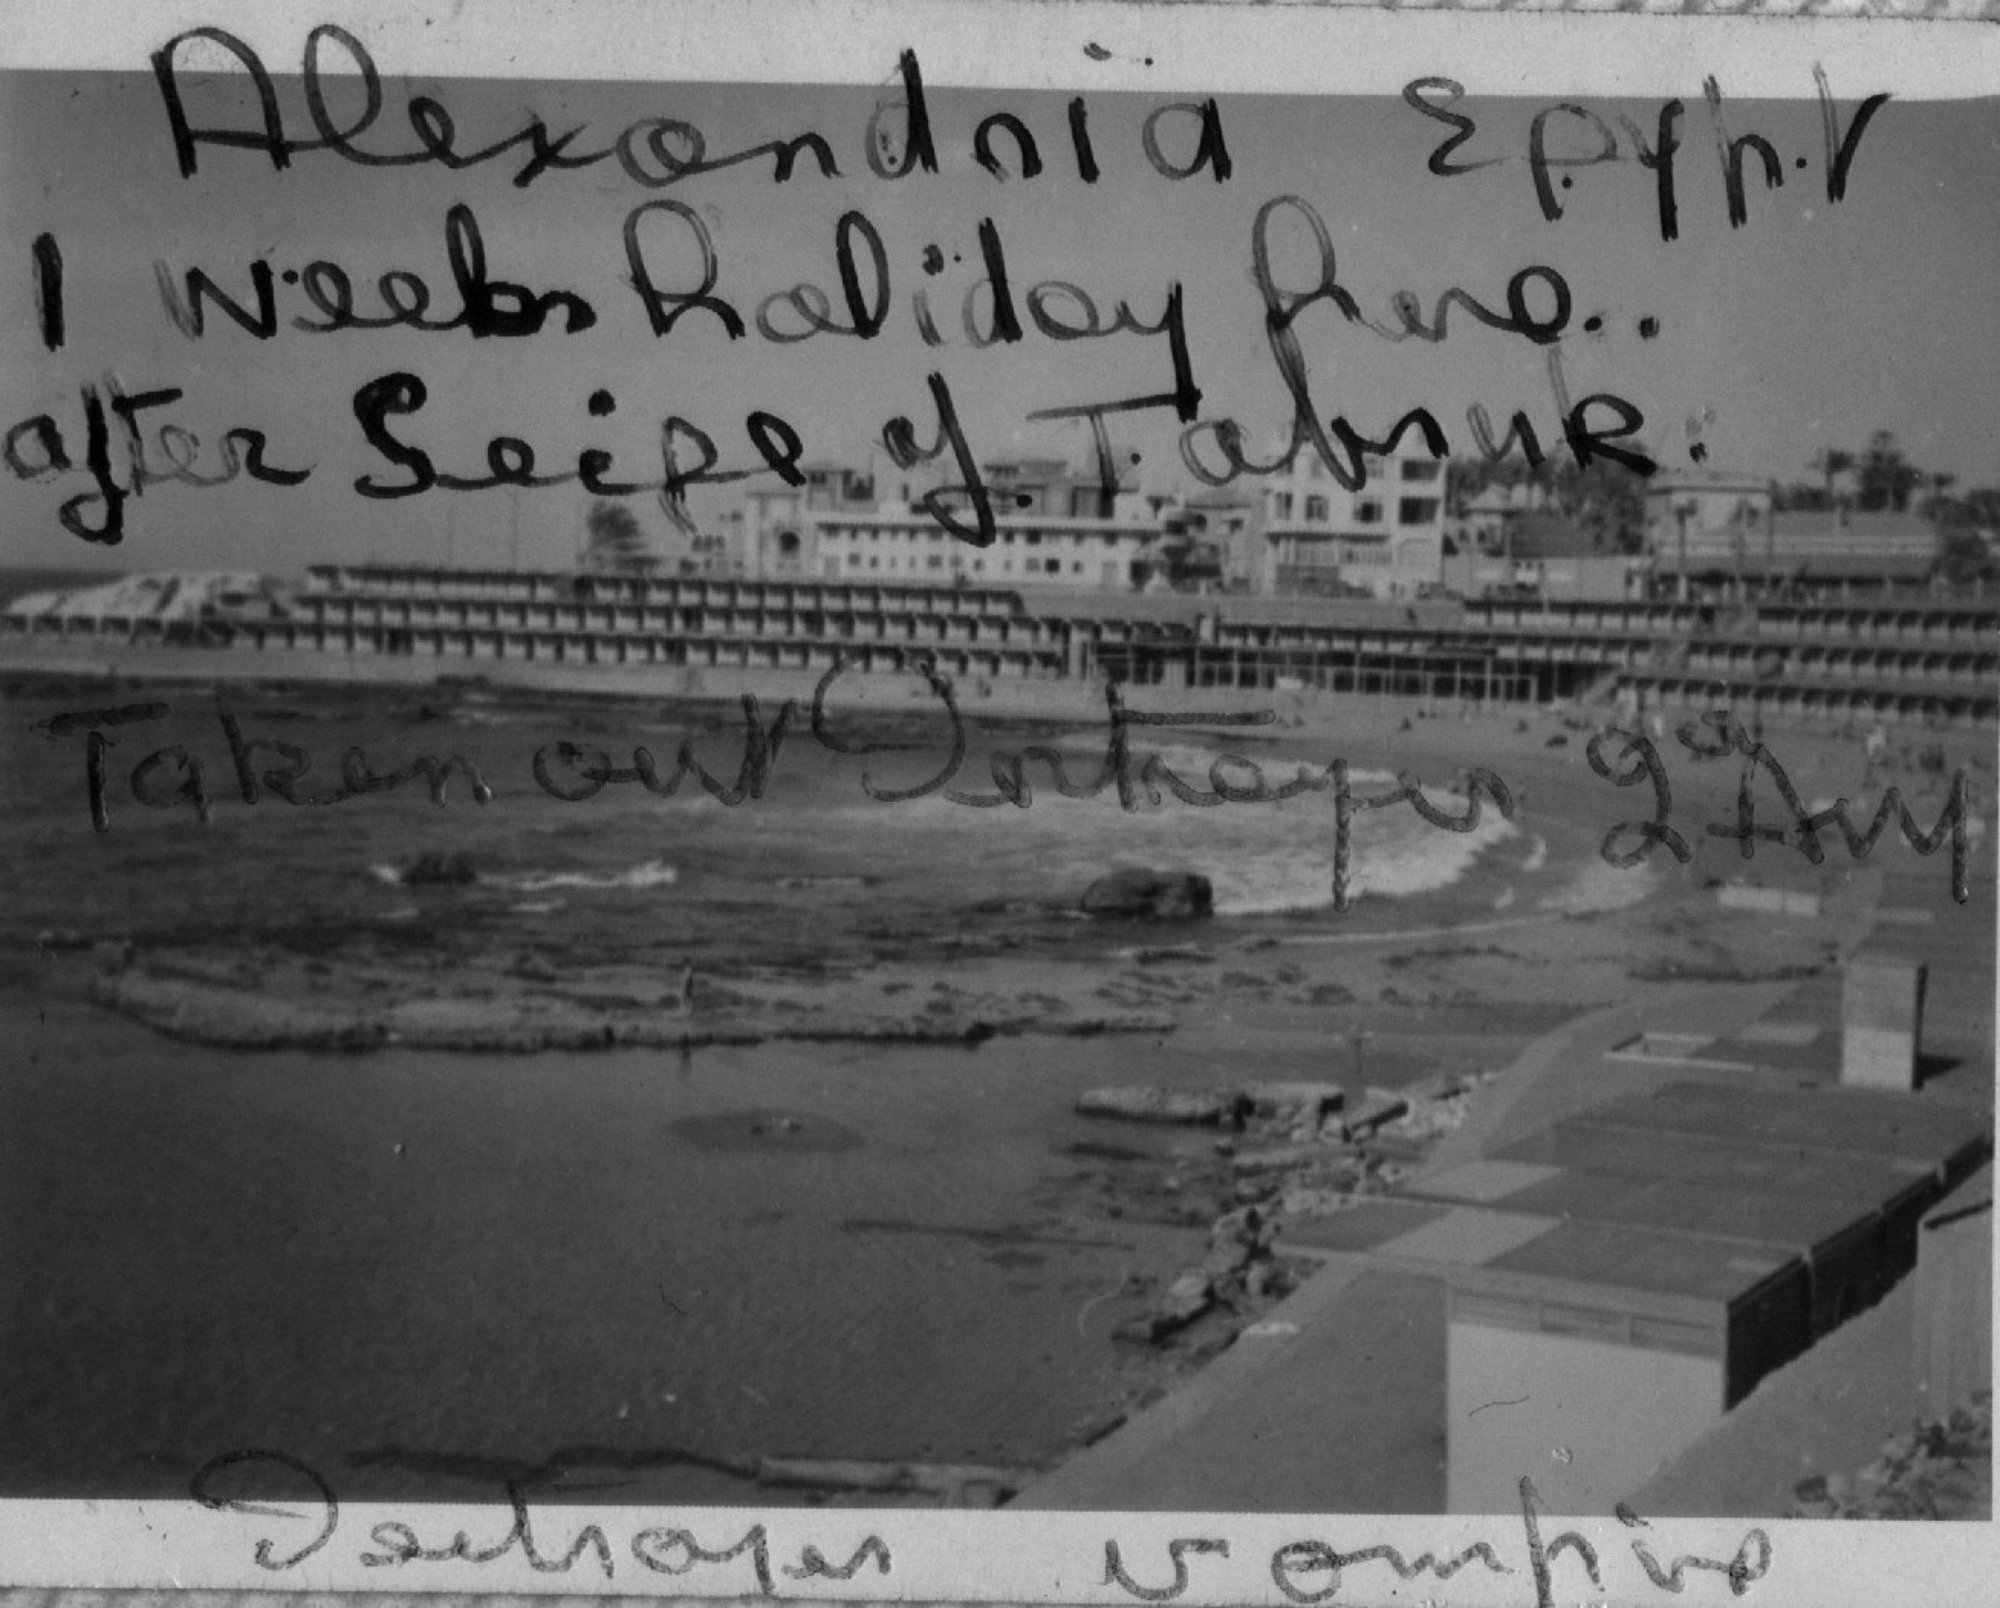 Alexandria Egypt
1 weeks holiday here..
after Seige of Tabruk.
Taken out Destroyer
Destroyer vampire